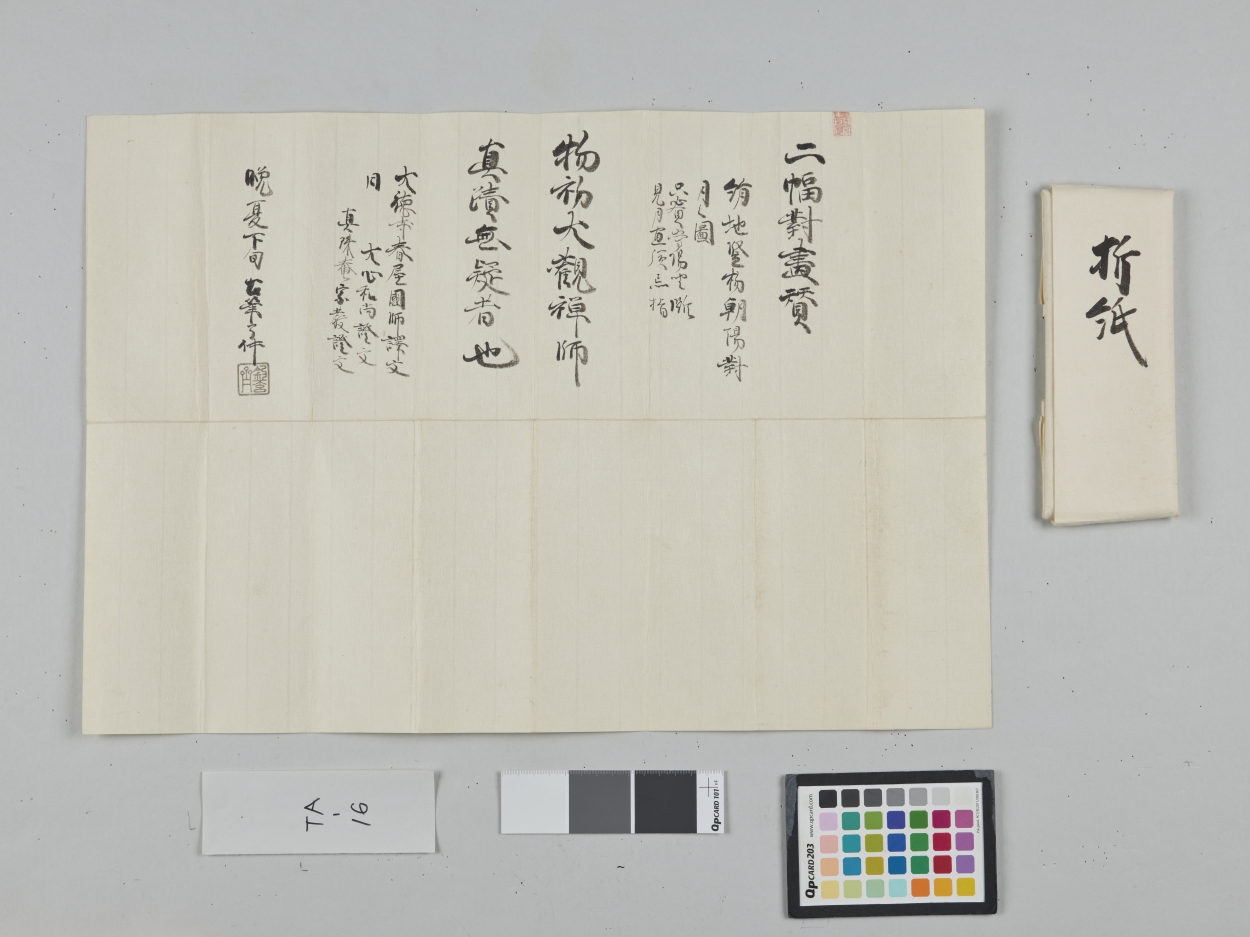 二幅對畫賛
絹地竪物朝陽對
月之圖
見月
物初大觀禅師
真蹟無疑者也
大徳寺春屋國師譯文
同 大心和尚證文
真珠菴宗證文
晩夏下旬 古筆了仲
折紙
TA
-
16
QPCARD 101
QPCARD 203
www.qpcard.com